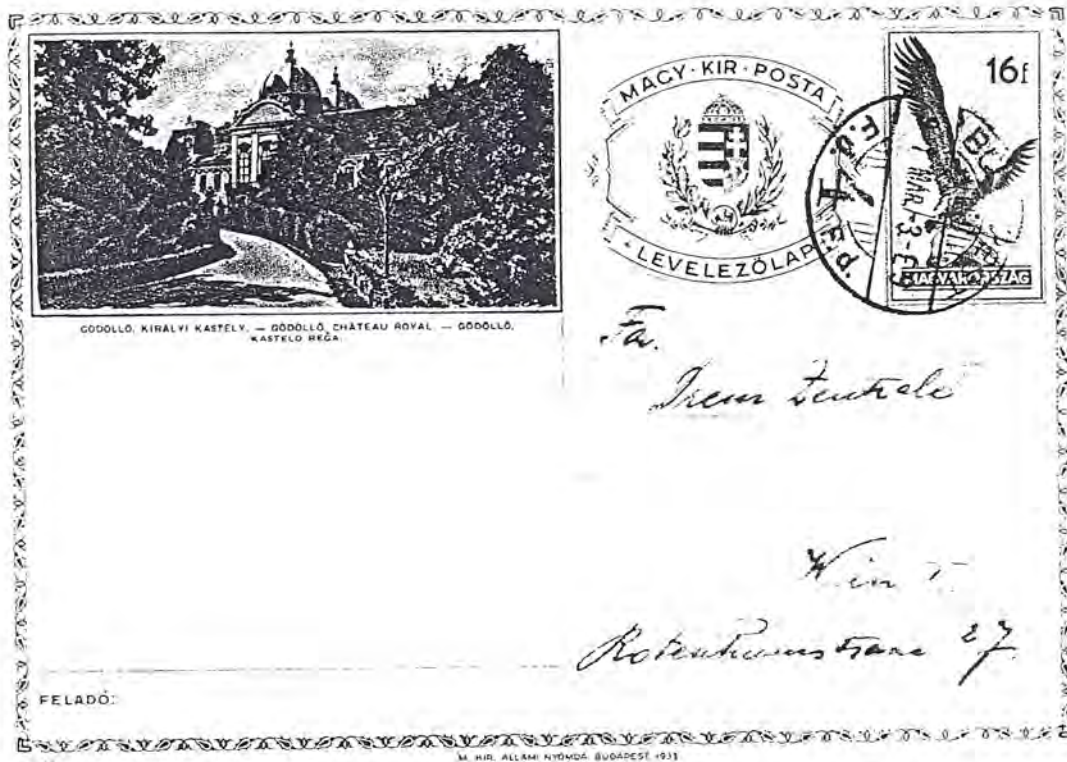 GÖDÖLLŐ, KIRÁLYI KASTÉLY. — GÖDÖLLŐ, CHÂTEAU ROYAL. — GÖDÖLLŐ,
KASTELO REĜA.
MAGY·KIR·POSTA
LEVELEZŐLAP
16f
MAGYARORSZÁG
MAR.-3
Fa.
Zentrale
Wien I.
Rotenturmstrasse 27
FELADÓ:
M. KIR. ÁLLAMI NYOMDA BUDAPEST 1933